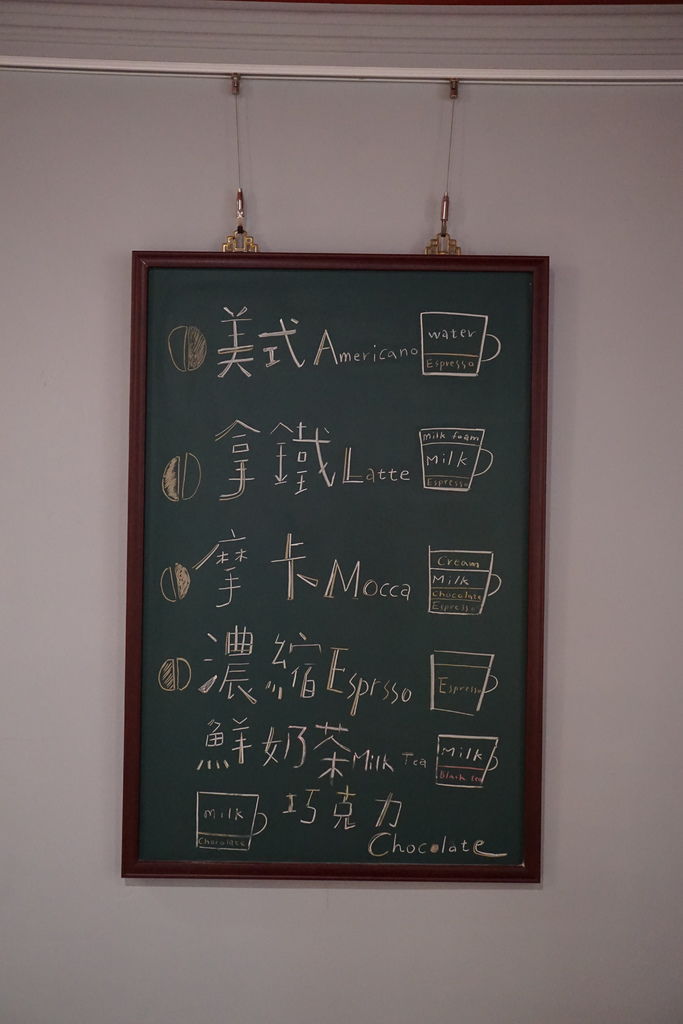 美式 Americano
water
Espresso
拿鐵 Latte
Milk foam
Milk
Espresso
摩卡 Mocca
Cream
Milk
Chocolate
Espresso
濃縮 Esprsso
Espresso
鮮奶茶 Milk Tea
Milk
Black tea
巧克力
Milk
Chocolate
Chocolate